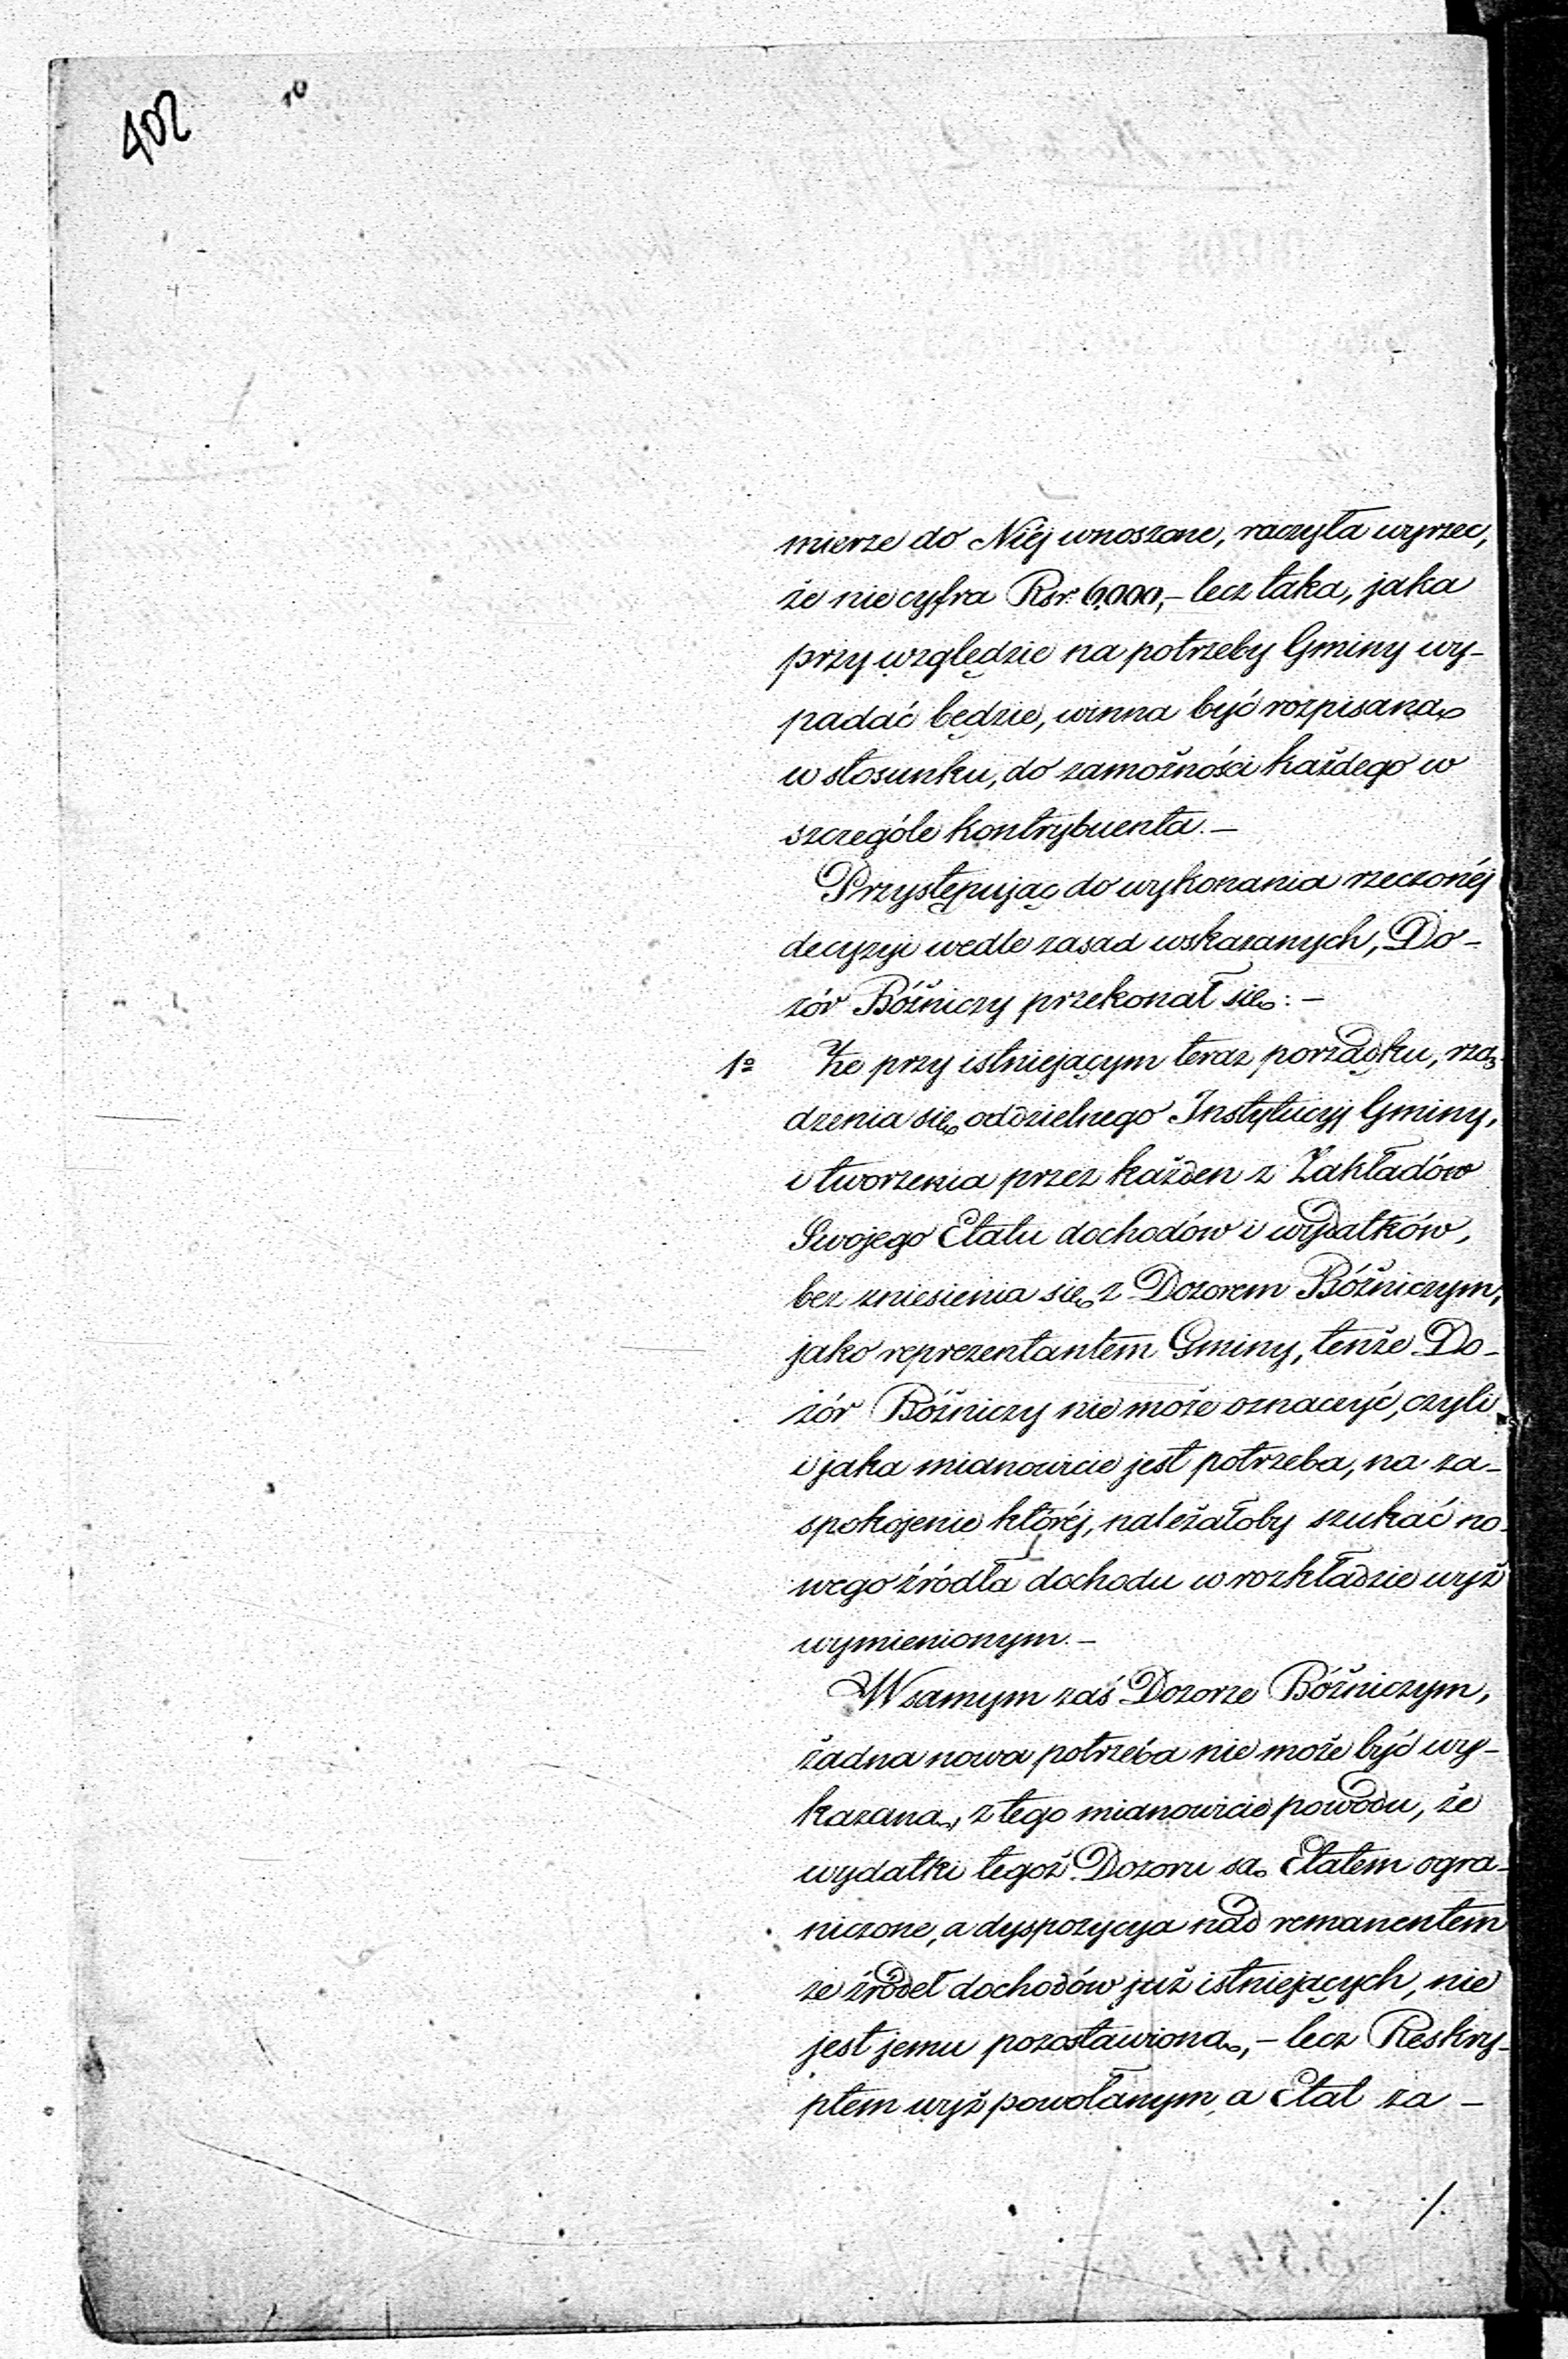 402
10
mierze do Niéj wnoszone, raczyła wyrzec,
że nie cyfra Rsr. 6,000,- lecz taka, jaka
przy względzie na potrzeby Gminy wy-
padać będzie, winna być rozpisaną
w stosunku, do zamożności każdego w
szczególe kontrybuenta.-
Przystępując do wykonania rzeczonéj
decyzyi wedle zasad wskazanych, Do-
zór Bóżniczy przekonał się:-
1º Że przy istniejącym teraz porządku, rzą-
dzenia się oddzielnego Instytucyj Gminy,
i tworzenia przez każden z Zakładów
Swojego Etatu dochodów i wydatków,
bez zniesienia się z Dozorem Bóżniczym,
jako reprezentantem Gminy, tenże Do-
zór Bóżniczy nie może oznaczyć, czyli
i jaka mianowicie jest potrzeba, na za-
spokojenie któréj, należałoby szukać no-
wego źródła dochodu w rozkładzie wyż
wymienionym.-
W samym zaś Dozorze Bóżniczym,
żadna nowa potrzeba nie może być wy-
kazaną, z tego mianowicie powodu, że
wydatki tegoż Dozoru są Etatem ogra-
niczone, a dyspozycya nad remanentem
ze źródeł dochodów już istniejących, nie
jest jemu pozostawioną,- lecz Reskry-
ptem wyż powołanym, a Etat za-
./.